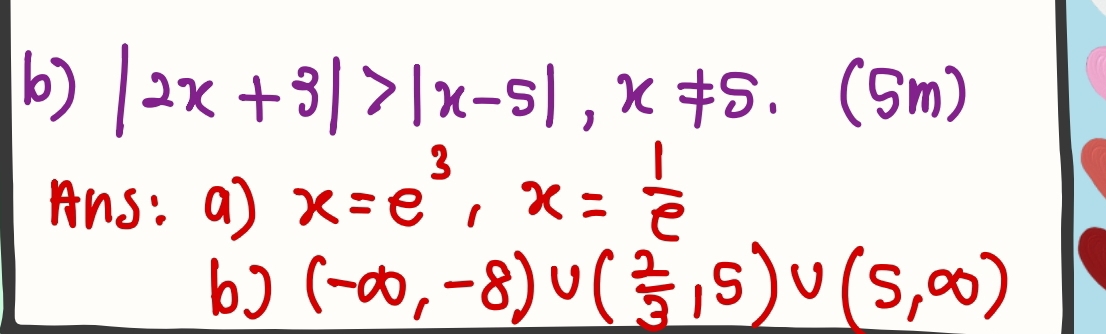 b) |2x + 3| > |x-5|, x ≠ 5. (5m)
Ans: a) x = e³, x = 1/e
b) (-∞, -8) ∪ (2/3, 5) ∪ (5, ∞)